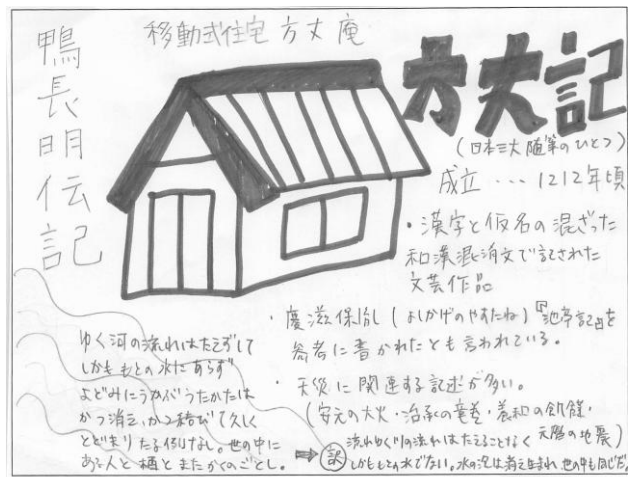 鴨長明伝記
移動式住宅 方丈庵
方丈記
(日本三大随筆のひとつ)
成立…1212年頃
・漢字と仮名の混ざった
和漢混淆文で記された
文芸作品
・慶滋保胤(よしかげのやすたね)『池亭記』を
参考に書かれたとも言われている。
・天災に関連する記述が多い。
(安元の大火・治承の竜巻・養和の飢饉・
元暦の地震)
ゆく河の流れはたえずして
しかももとの水にあらず
よどみにうかぶうたかたは
かつ消え、かつ結びて久しく
とどまりたる例なし。世の中に
ある人と栖とまたかくのごとし。
➡ 訳 流れゆく川の流れはたえることなく
しかももとの水でない。水の泡は消え生まれ 世の中も同じだ。